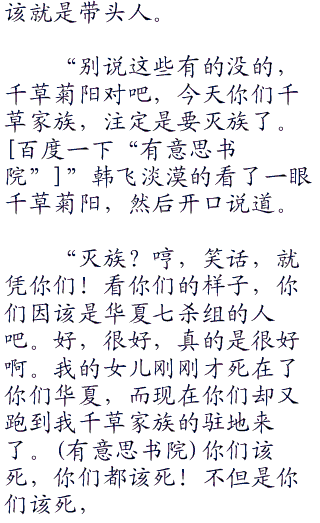 该就是带头人。
“别说这些有的没的，
千草菊阳对吧，今天你们千
草家族，注定是要灭族了。
[百度一下“有意思书
院”]”韩飞淡漠的看了一眼
千草菊阳，然后开口说道。
“灭族？哼，笑话，就
凭你们！看你们的样子，你
们因该是华夏七杀组的人
吧。好，很好，真的是很好
啊。我的女儿刚刚才死在了
你们华夏，而现在你们却又
跑到我千草家族的驻地来
了。(有意思书院)你们该
死，你们都该死！不但是你
们该死，